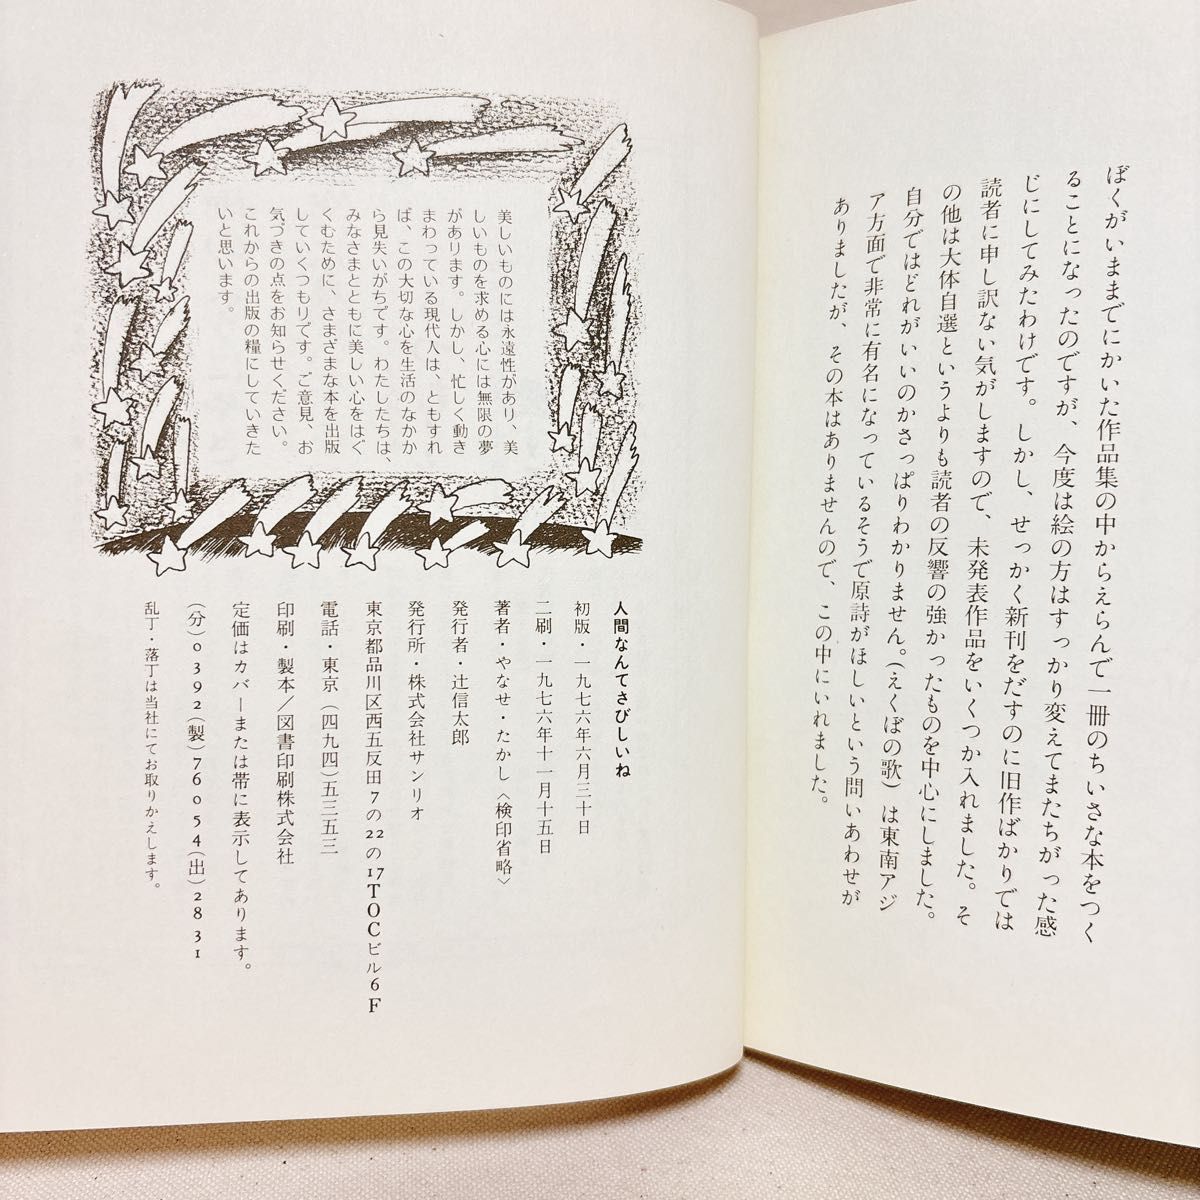 ぼくがいままでにかいた作品集の中からえらんで一冊のちいさな本をつく
ることになったのですが、今度は絵の方はすっかり変えてまたちがった感
じにしてみたわけです。しかし、せっかく新刊をだすのに旧作ばかりでは
読者に申し訳ない気がしますので、未発表作品をいくつか入れました。そ
の他は大体自選というよりも読者の反響の強かったものを中心にしました。
自分ではどれがいいのかさっぱりわかりません。(えくぼの歌)は東南アジ
ア方面で非常に有名になっているそうで原詩がほしいという問いあわせが
ありましたが、その本はありませんので、この中にいれました。
美しいものには永遠性があり、美
しいものを求める心には無限の夢
があります。しかし、忙しく動き
まわっている現代人は、ともすれ
ば、この大切な心を生活のなかか
ら見失いがちです。わたしたちは、
みなさまとともに美しい心をはぐ
くむために、さまざまな本を出版
していくつもりです。ご意見、お
気づきの点をお知らせください。
これからの出版の糧にしていきた
いと思います。
人間なんてさびしいね
初版・一九七六年六月三十日
二刷・一九七六年十一月十五日
著者・やなせ・たかし〈検印省略〉
発行者・辻信太郎
発行所・株式会社サンリオ
東京都品川区西五反田7の22の17TOCビル6F
電話・東京(四九四)五三五三
印刷・製本/図書印刷株式会社
定価はカバーまたは帯に表示してあります。
(分)0392(製)76054(出)2831
乱丁・落丁は当社にてお取りかえします。